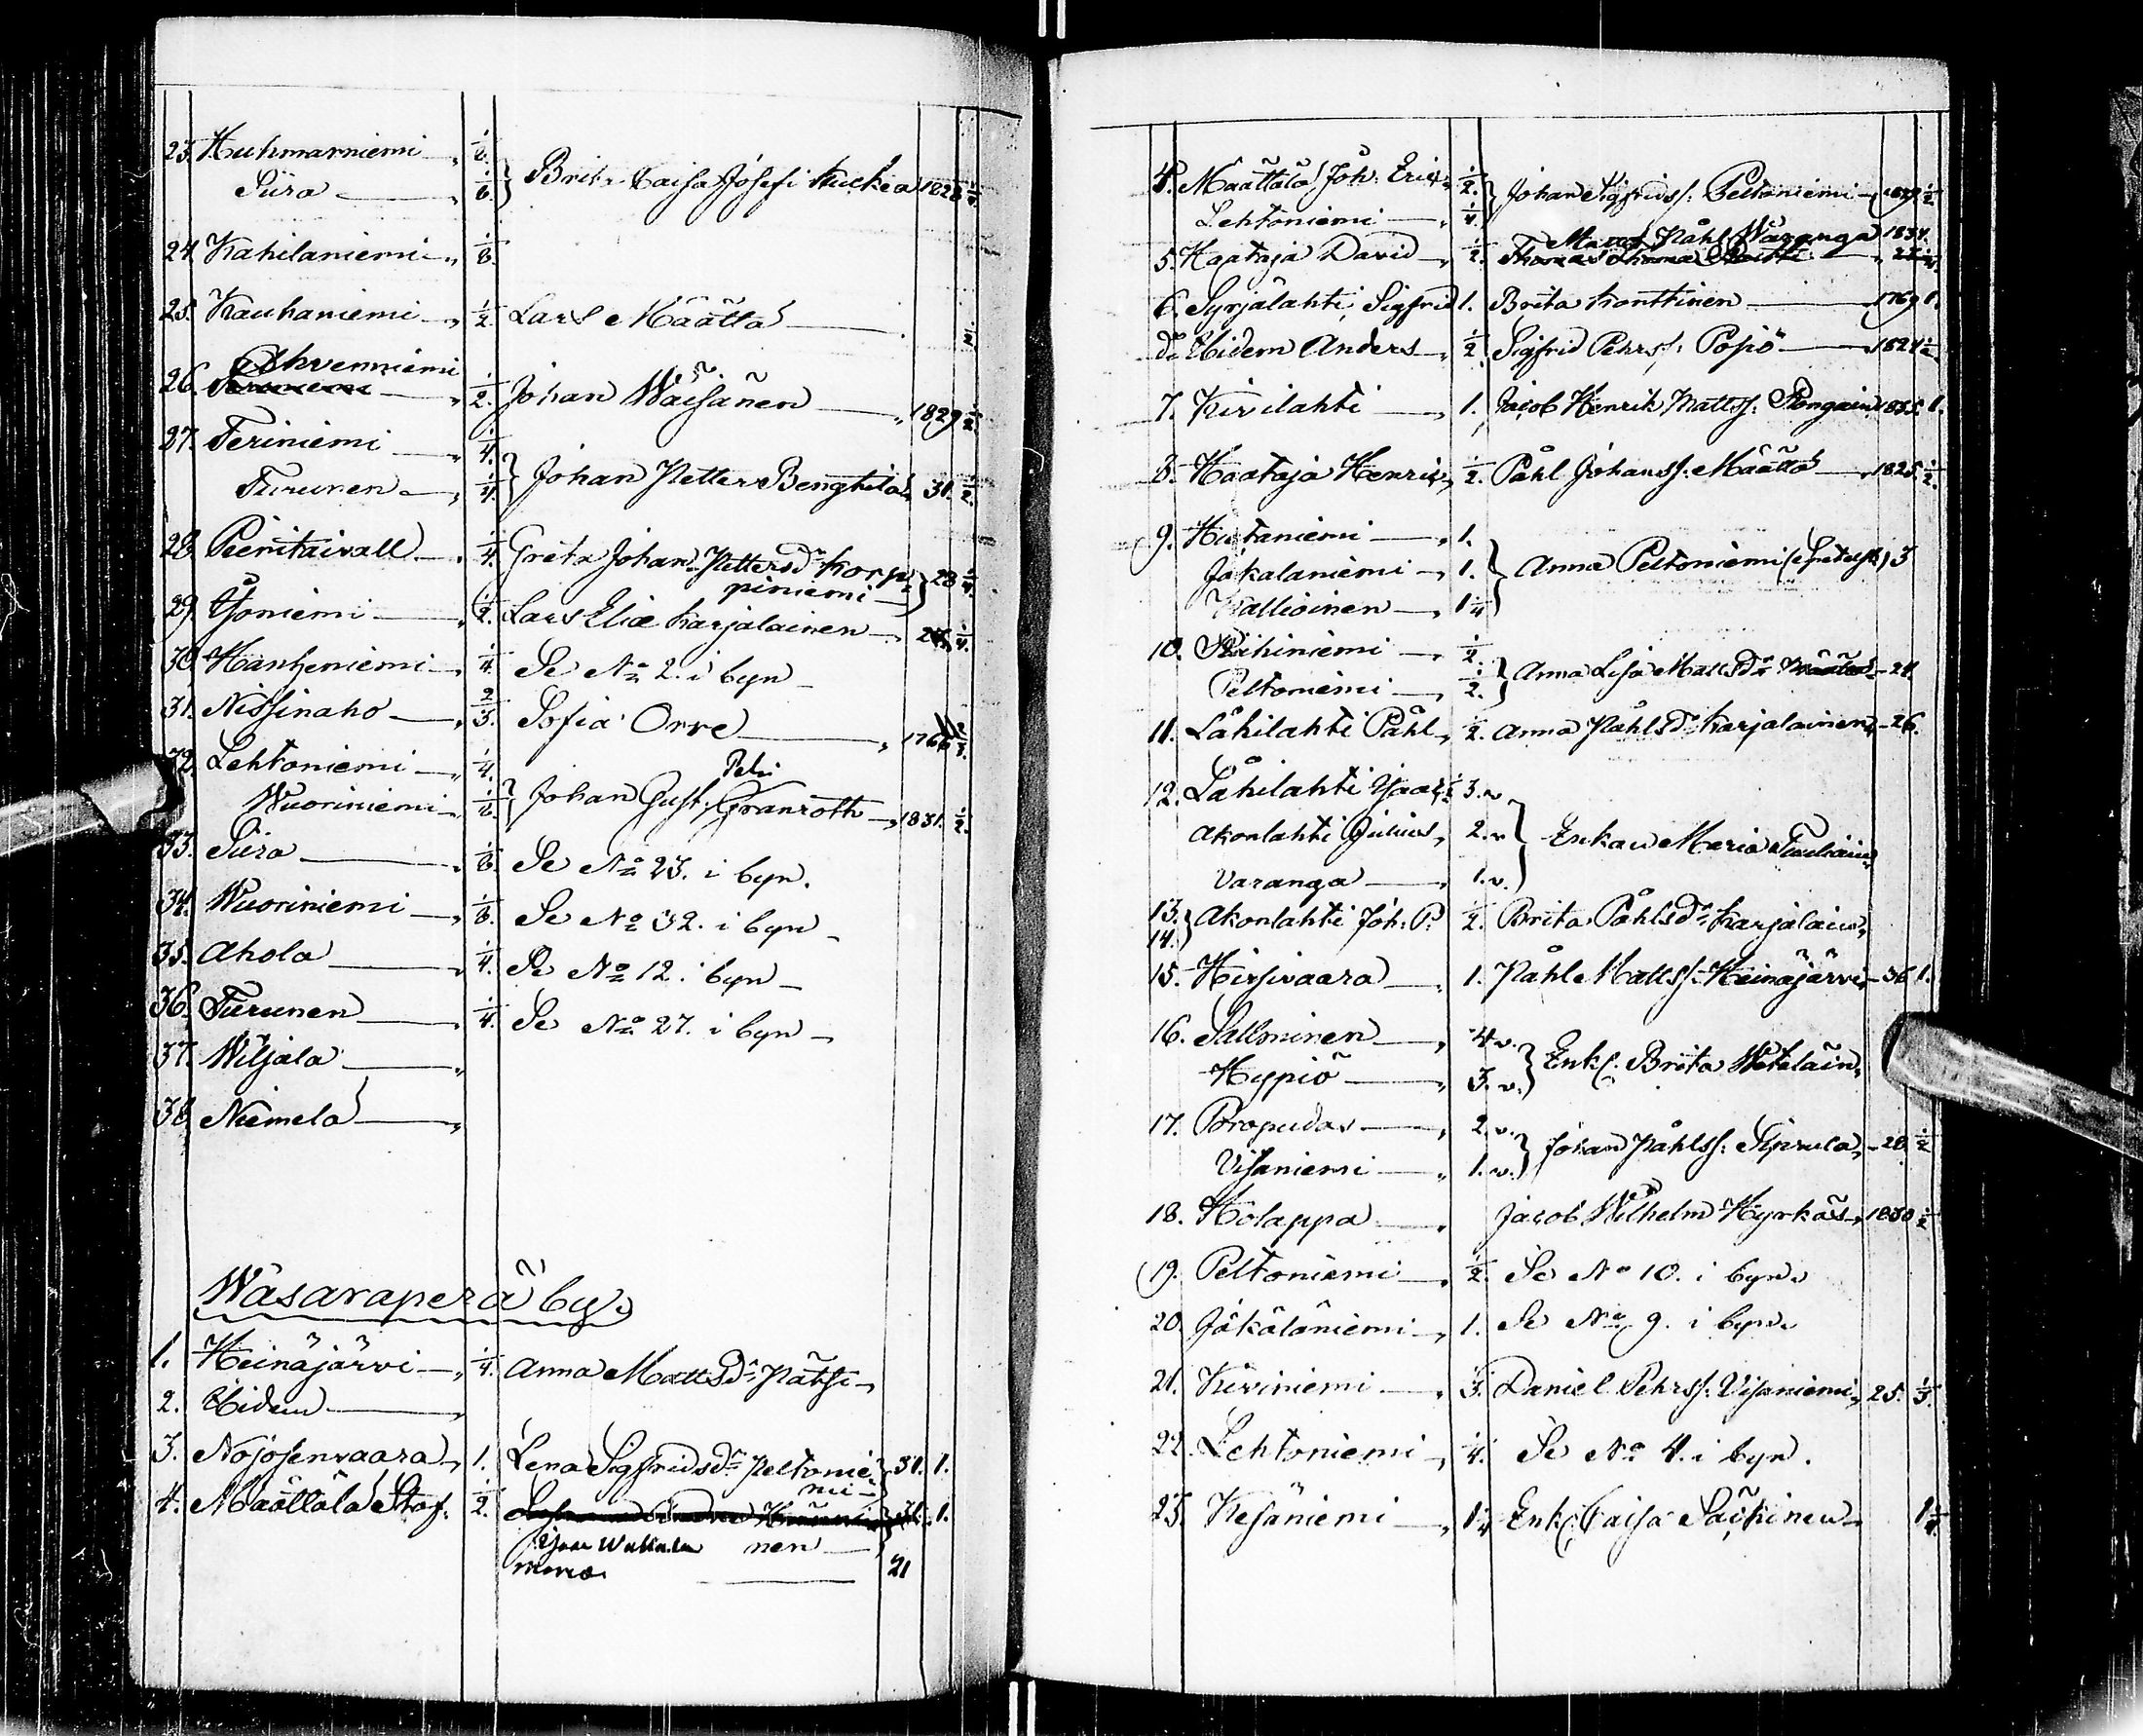 23. Huhmarniemi " 1/8.
Siira " 1/8. } Brita Caisa Josefi Kuckea 1828 1/4
24. Kahilaniemi " 1/8.
25. Kauhaniemi " 1/2. Lars Määttä
Ahvenniemi
26. " 1/2. Johan Wäisänen " 1829 1/2.
27. Teriniemi " 1/4.
Turunen " 1/4. } Johan Petter Bengtila 31. 1/2.
28. Peenitaivall " 1/4. Greta Johan Pettersdr Korp-
piniemi } 28 1/4.
29. Ojoniemi " 1/2. Lars Eliæ Karjalainen 1/4.
30. Hanheniemi " 1/4. Se No 2. i byn
31. Nissinaho " 2/3. Sofia Orre " 1766 2/3.
32. Lehtoniemi " 1/4.
Petri
Wuoriniemi " 1/8. } Johan Gust. Granroth " 1831. 1/2.
33. Siira " 1/8. Se No 23. i byn.
34. Wuoriniemi " 1/8. Se No 32. i byn
35. Ahola " 1/4. Se No 12. i byn
36. Turunen " 1/4. Se No 27. i byn
37. Wiljala "
38. Niemelä "
Wasaraperä by.
1. Heinäjärvi " 1/4. Anna Mattsdr Pätsi
2. Ibidem "
3. Nojosenvaara " 1. Lena Sigfridsdr Peltonie-
mi } 31. 1.
4. Määttälä Staf. 1/2. 1.
nen
21
4. Määttälä Joh. Eric " 1/2.
Lehtoniemi " 1/4. } Johan Sigfridss. Peltoniemi 1829 1/2
Påhl Waranga 1834.
5. Haataja David " 1/2. Thomas
6. Syrjälahti Sigfrid 1. Brita Konttinen 1769 1.
do Ibidem Anders " 1/2 Sigfrid Pehrss. Posiö 1824 1/2
7. Kirilahti " 1. Jacob Henrik Mattss. Pongain 1835. 1.
8. Haataja Henric " 1/2. Påhl Johanss. Määttä " 1825. 1/2.
9. Hustaniemi " 1.
Jäkäläniemi " 1. } Anna Peltoniemi 3
Kallioinen " 1 1/4
10. Riihiniemi " 1/2.
Peltoniemi " 1/2. } Anna Lisa Mattsdr 24.
11. Låhilahti Påhl " 1/2. Anna Påhlsdr Karjalainen 26.
12. Låhilahti Isaac " 3. v.
Akonlahti Julius " 2. v } Enkan Maria
Varanga " 1. v.
13.
14. } Akonlahti Joh. P. 1/2. Brita Påhlsdr Karjalain "
15. Hirsivaara " 1. Påhl Mattss. Heinäjärvi 36 1.
16. Sallminen " 4 v.
Hypiö " 3. v. } Enk. Brita Wetelain "
17. Poropudas " 2. v.
Visaniemi " 1. v. } Johan Påhlss. Siprula " 28 1/2
18. Kolappa " Jacob Wilhelm Hyrkäs " 1830 1/2
19. Peltoniemi " 1/2. Se No 10. i byn
20. Jäkäläniemi " 1. Se No 9. i byn
21. Kiviniemi " 1/3. Daniel Pehrss. Visaniemi " 25. 1/3.
22. Lehtoniemi " 1/4. Se No 4. i byn.
23. Kesäniemi " 1 1/4 Enk. Caisa Säikinen 1 1/4